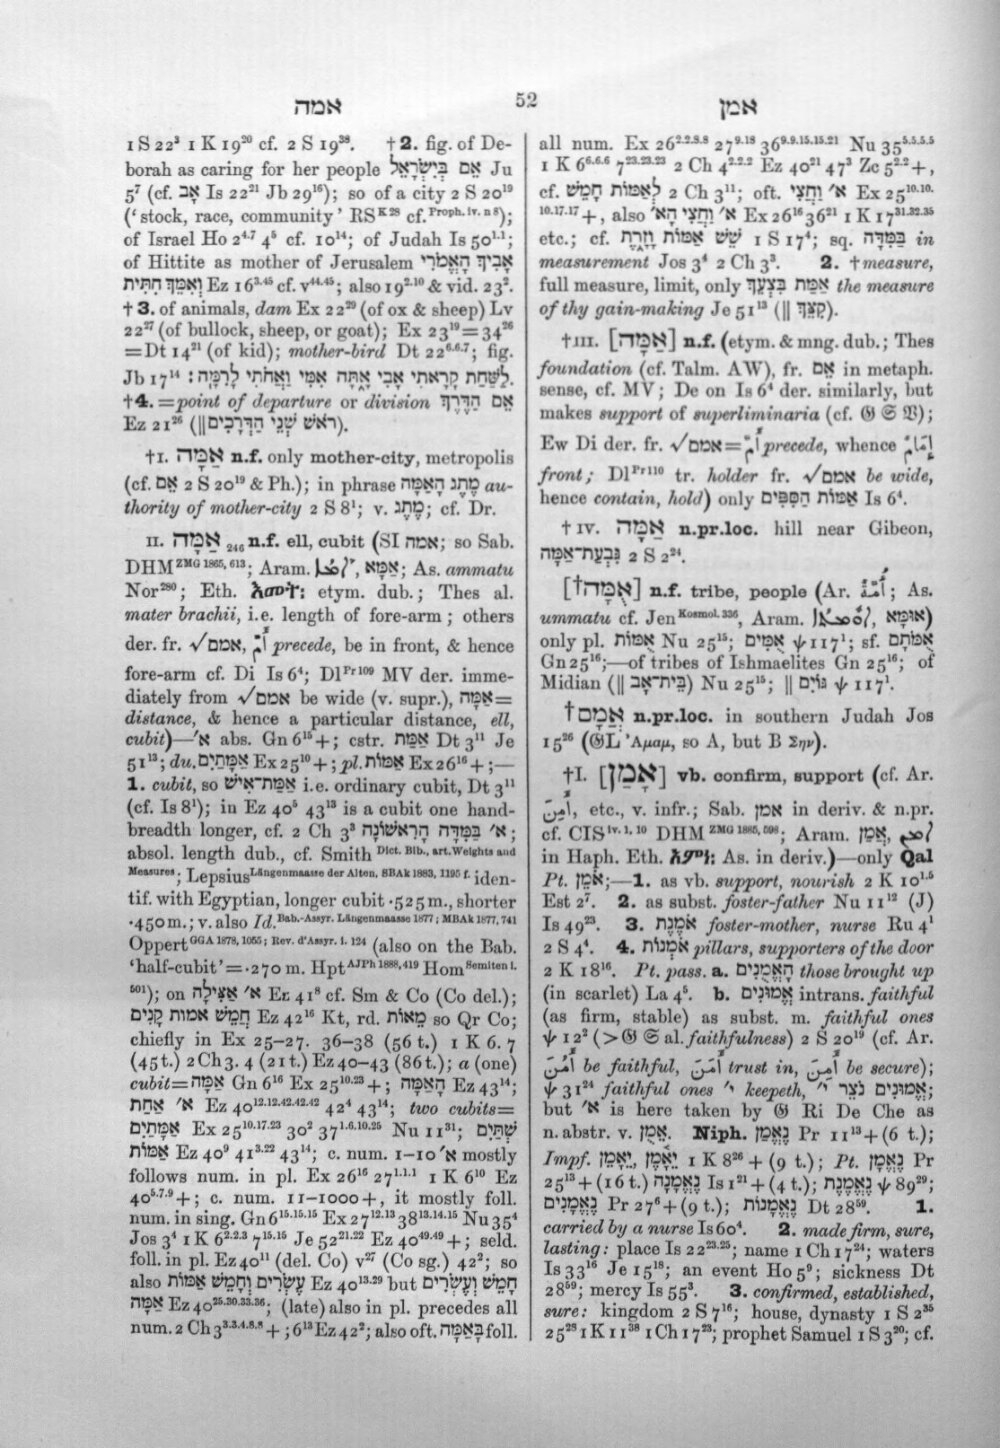 אמה
52
אמן
1 S 22³ 1 K 19²⁰ cf. 2 S 19³⁸. †2. fig. of De-
borah as caring for her people אֵם בְּיִשְׂרָאֵל Ju
5⁷ (cf. אָב Is 22²¹ Jb 29¹⁶); so of a city 2 S 20¹⁹
(‘stock, race, community’ RS K 28 cf. Proph. iv. n 8);
of Israel Ho 2⁴·⁷ 4⁵ cf. 10¹⁴; of Judah Is 50¹·¹;
of Hittite as mother of Jerusalem אָבִיךְ הָאֱמֹרִי
וְאִמֵּךְ חִתִּית Ez 16³·⁴⁵ cf. v⁴⁴·⁴⁵; also 19²·¹⁰ & vid. 23².
†3. of animals, dam Ex 22²⁹ (of ox & sheep) Lv
22²⁷ (of bullock, sheep, or goat); Ex 23¹⁹=34²⁶
=Dt 14²¹ (of kid); mother-bird Dt 22⁶·⁶·⁷; fig.
Jb 17¹⁴ לַשַּׁחַת קָרָאתִי אָבִי אָתָּה אִמִּי וַאֲחֹתִי לָרִמָּה׃.
†4. =point of departure or division אֵם הַדֶּרֶךְ
Ez 21²⁶ (‖רֹאשׁ שְׁנֵי הַדְּרָכִים).
†I. אַמָּה n.f. only mother-city, metropolis
(cf. אֵם 2 S 20¹⁹ & Ph.); in phrase מֶתֶג הָאַמָּה au-
thority of mother-city 2 S 8¹; v. מֶתֶג; cf. Dr.
II. אַמָּה 246 n.f. ell, cubit (SI אמה; so Sab.
DHM ZMG 1865, 613; Aram. אַמָּא; As. ammatu
Nor²⁸⁰; Eth. እመት፡ etym. dub.; Thes al.
mater brachii, i.e. length of fore-arm; others
der. fr. √אמם, أَمَّ precede, be in front, & hence
fore-arm cf. Di Is 6⁴; Dl Pr 109 MV der. imme-
diately from √אמם be wide (v. supr.), אַמָּה=
distance, & hence a particular distance, ell,
cubit)—א׳ abs. Gn 6¹⁵+; cstr. אַמַּת Dt 3¹¹ Je
51¹³; du. אַמָּתַיִם Ex 25¹⁰+; pl. אַמּוֹת Ex 26¹⁶+;—
1. cubit, so אַמַּת־אִישׁ i.e. ordinary cubit, Dt 3¹¹
(cf. Is 8¹); in Ez 40⁵ 43¹³ is a cubit one hand-
breadth longer, cf. 2 Ch 3³ א׳ בַּמִּדָּה הָרִאשׁוֹנָה;
absol. length dub., cf. Smith Dict. Bib., art. Weights and
Measures; Lepsius Längenmaasse der Alten, SBAk 1883, 1195 f. iden-
tif. with Egyptian, longer cubit ·525 m., shorter
·450 m.; v. also Id. Bab.-Assyr. Längenmaasse 1877; MBAk 1877, 741
Oppert GGA 1878, 1055; Rev. d’Assyr. i. 124 (also on the Bab.
‘half-cubit’=·270 m. Hpt AJPh 1888, 419 Hom Semiten i.
501); on א׳ אַצִּילָה Ez 41⁸ cf. Sm & Co (Co del.);
חֲמֵשׁ אמות קָנִים Ez 42¹⁶ Kt, rd. מֵאוֹת so Qr Co;
chiefly in Ex 25–27. 36–38 (56 t.) 1 K 6. 7
(45 t.) 2 Ch 3. 4 (21 t.) Ez 40–43 (86 t.); a (one)
cubit=אַמָּה Gn 6¹⁶ Ex 25¹⁰·²³+; הָאַמָּה Ez 43¹⁴;
א׳ אַחַת Ez 40¹²·¹²·⁴²·⁴²·⁴² 42⁴ 43¹⁴; two cubits=
אַמָּתַיִם Ex 25¹⁰·¹⁷·²³ 30² 37¹·⁶·¹⁰·²⁵ Nu 11³¹; שְׁתַּיִם
אַמּוֹת Ez 40⁹ 41³·²² 43¹⁴; c. num. 1–10 א׳ mostly
follows num. in pl. Ex 26¹⁶ 27¹·¹·¹ 1 K 6¹⁰ Ez
40⁵·⁷·⁹+; c. num. 11–1000+, it mostly foll.
num. in sing. Gn 6¹⁵·¹⁵·¹⁵ Ex 27¹²·¹³ 38¹³·¹⁴·¹⁵ Nu 35⁴
Jos 3⁴ 1 K 6²·²·³ 7¹⁵·¹⁵ Je 52²¹·²² Ez 40⁴⁹·⁴⁹+; seld.
foll. in pl. Ez 40¹¹ (del. Co) v²⁷ (Co sg.) 42²; so
also עֶשְׂרִים וְחָמֵשׁ אַמּוֹת Ez 40¹³·²⁹ but חָמֵשׁ וְעֶשְׂרִים
אַמָּה Ez 40²⁵·³⁰·³³·³⁶; (late) also in pl. precedes all
num. 2 Ch 3³·³·⁴·⁸·⁸+; 6¹³ Ez 42²; also oft. בָּאַמָּה foll.
all num. Ex 26²·²·⁸·⁸ 27⁹·¹⁸ 36⁹·⁹·¹⁵·¹⁵·²¹ Nu 35⁵·⁵·⁵·⁵
1 K 6⁶·⁶·⁶ 7²³·²³·²³ 2 Ch 4²·²·² Ez 40²¹ 47³ Zc 5²·²+,
cf. לְאַמּוֹת חָמֵשׁ 2 Ch 3¹¹; oft. א׳ וַחֲצִי Ex 25¹⁰·¹⁰·
¹⁰·¹⁷·¹⁷+, also א׳ וַחֲצִי הא׳ Ex 26¹⁶ 36²¹ 1 K 17³¹·³²·³⁵
etc.; cf. שֵׁשׁ אַמּוֹת וָזָרֶת 1 S 17⁴; sq. בַּמִּדָּה in
measurement Jos 3⁴ 2 Ch 3³. 2. †measure,
full measure, limit, only אַמַּת בִּצְעֵךְ the measure
of thy gain-making Je 51¹³ (‖ קִצֵּךְ).
†III. [אַמָּה] n.f. (etym. & mng. dub.; Thes
foundation (cf. Talm. AW), fr. אֵם in metaph.
sense, cf. MV; De on Is 6⁴ der. similarly, but
makes support of superliminaria (cf. 𝔊 𝔖 𝔙);
Ew Di der. fr. √אמם=أَمَّ precede, whence إِمَامٌ
front; Dl Pr 110 tr. holder fr. √אמם be wide,
hence contain, hold) only אַמּוֹת הַסִּפִּים Is 6⁴.
†IV. אַמָּה n.pr.loc. hill near Gibeon,
גִּבְעַת־אַמָּה 2 S 2²⁴.
[†אֻמָּה] n.f. tribe, people (Ar. أُمَّةٌ; As.
ummatu cf. Jen Kosmol. 336, Aram. אוּמָּא)
only pl. אֻמּוֹת Nu 25¹⁵; אֻמִּים ψ 117¹; sf. אֻמֹּתָם
Gn 25¹⁶;—of tribes of Ishmaelites Gn 25¹⁶; of
Midian (‖ בֵּית־אָב) Nu 25¹⁵; ‖ גּוֹיִם ψ 117¹.
†אֲמָם n.pr.loc. in southern Judah Jos
15²⁶ (𝔊L Ἀμαμ, so A, but B Σην).
†I. [אָמַן] vb. confirm, support (cf. Ar.
أَمِنَ, etc., v. infr.; Sab. אמן in deriv. & n.pr.
cf. CIS iv. 1, 10 DHM ZMG 1885, 598; Aram. אֲמַן,
in Haph. Eth. አምነ፡ As. in deriv.)—only Qal
Pt. אֹמֵן;—1. as vb. support, nourish 2 K 10¹·⁵
Est 2⁷. 2. as subst. foster-father Nu 11¹² (J)
Is 49²³. 3. אֹמֶנֶת foster-mother, nurse Ru 4¹
2 S 4⁴. 4. אֹמְנוֹת pillars, supporters of the door
2 K 18¹⁶. Pt. pass. a. הָאֱמֻנִים those brought up
(in scarlet) La 4⁵. b. אֱמוּנִים intrans. faithful
(as firm, stable) as subst. m. faithful ones
ψ 12² (>𝔊 𝔖 al. faithfulness) 2 S 20¹⁹ (cf. Ar.
أَمُنَ be faithful, أَمَنَ trust in, أَمِنَ be secure);
ψ 31²⁴ faithful ones י׳ keepeth, אֱמוּנִים נֹצֵר י׳;
but א׳ is here taken by 𝔊 Ri De Che as
n. abstr. v. אֵמֻן. Niph. נֶאֱמָן Pr 11¹³+(6 t.);
Impf. יֵאָמֶן, יֵאָמֵן 1 K 8²⁶+(9 t.); Pt. נֶאֱמָן Pr
25¹³+(16 t.) נֶאֱמָנָה Is 1²¹+(4 t.); נֶאֱמֶנֶת ψ 89²⁹;
נֶאֱמָנִים Pr 27⁶+(9 t.); נֶאֱמָנוֹת Dt 28⁵⁹. 1.
carried by a nurse Is 60⁴. 2. made firm, sure,
lasting: place Is 22²³·²⁵; name 1 Ch 17²⁴; waters
Is 33¹⁶ Je 15¹⁸; an event Ho 5⁹; sickness Dt
28⁵⁹; mercy Is 55³. 3. confirmed, established,
sure: kingdom 2 S 7¹⁶; house, dynasty 1 S 2³⁵
25²⁸ 1 K 11³⁸ 1 Ch 17²³; prophet Samuel 1 S 3²⁰; cf.